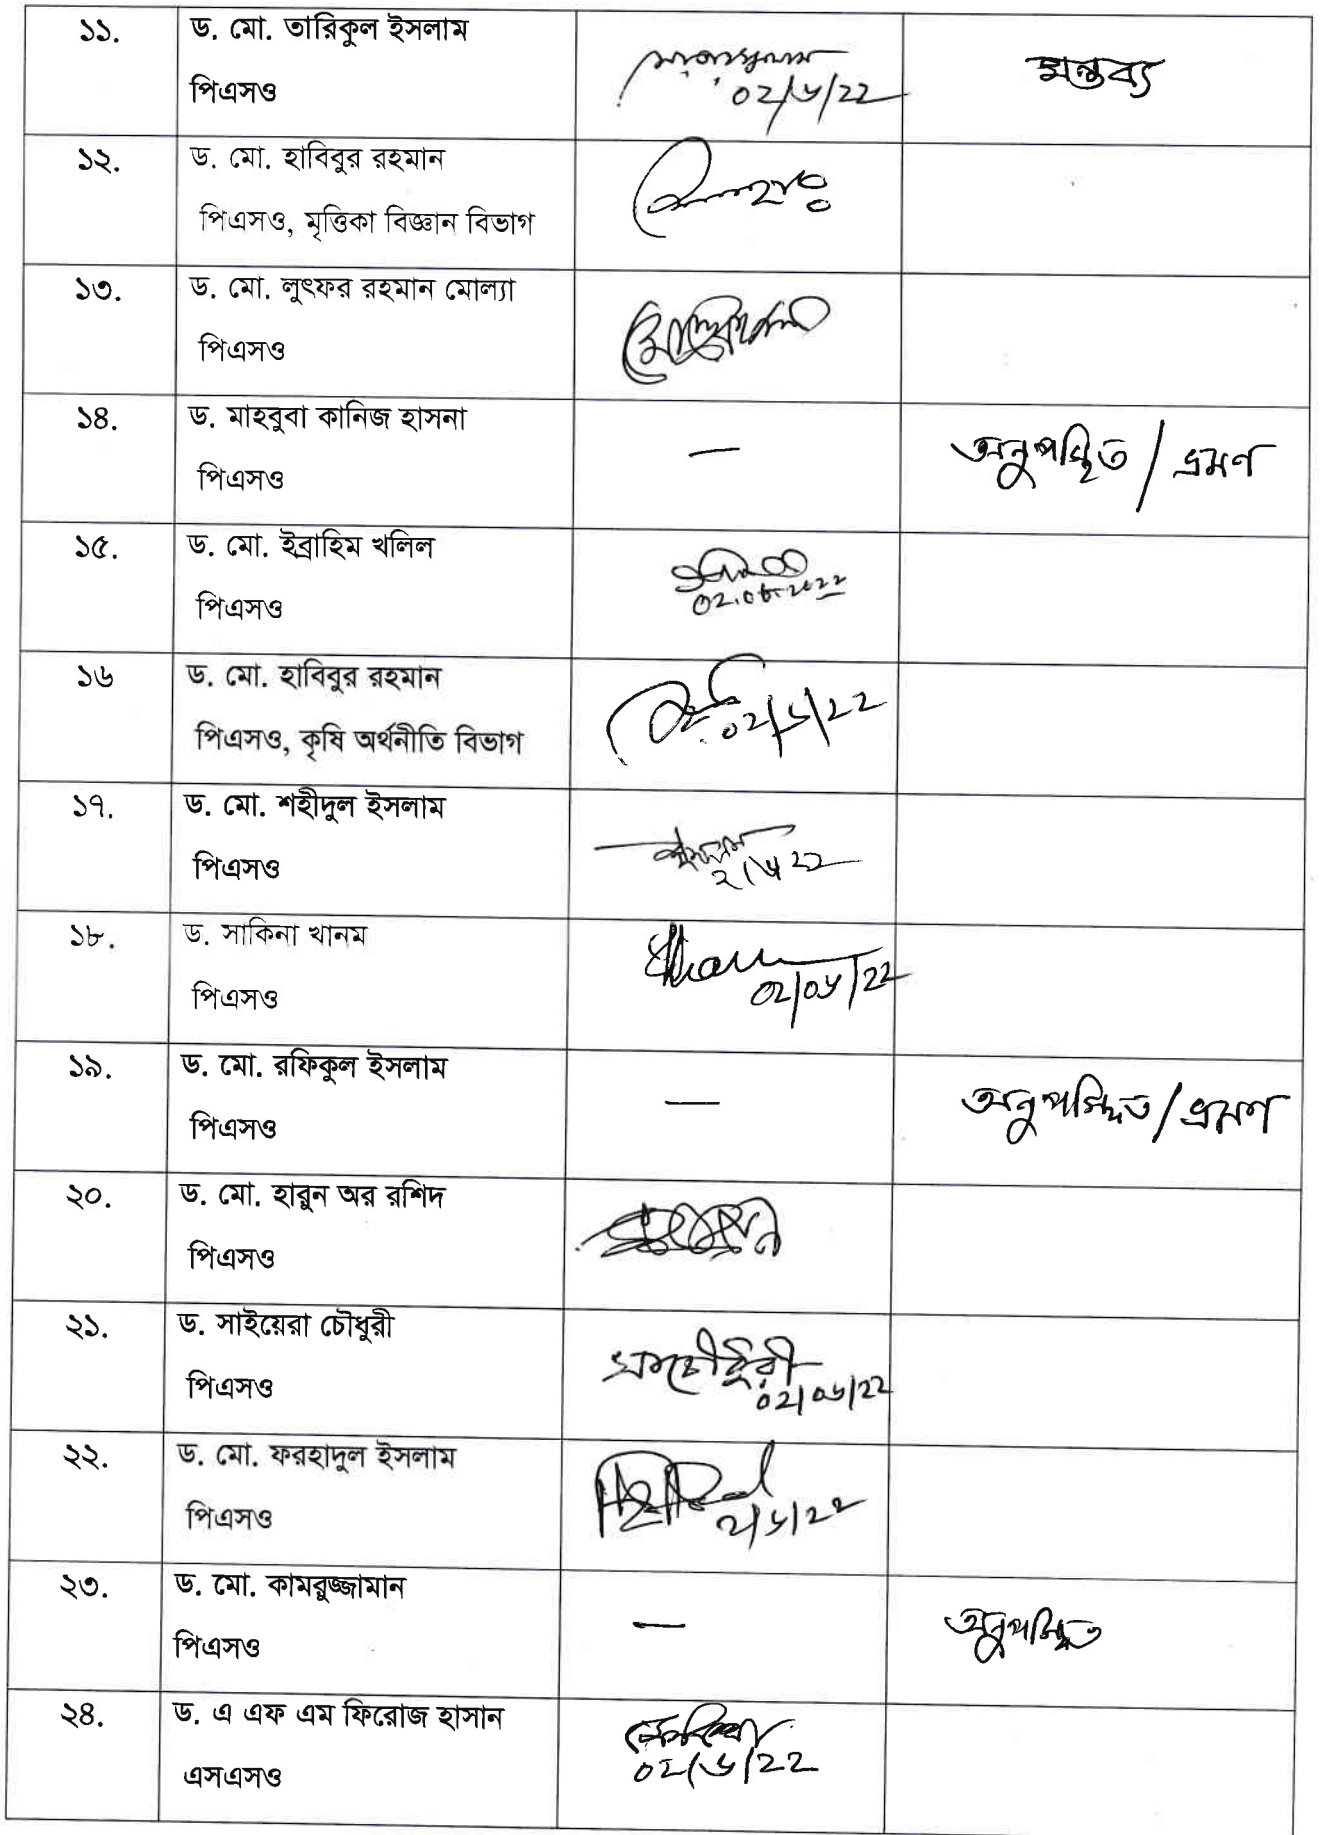 ১১. ড. মো. তারিকুল ইসলাম
পিএসও
০২/৬/২২ মন্তব্য
১২. ড. মো. হাবিবুর রহমান
পিএসও, মৃত্তিকা বিজ্ঞান বিভাগ
১৩. ড. মো. লুৎফর রহমান মোল্যা
পিএসও
১৪. ড. মাহবুবা কানিজ হাসনা
পিএসও
— অনুপস্থিত / ভ্রমণ
১৫. ড. মো. ইব্রাহিম খলিল
পিএসও
02.06.2022
১৬ ড. মো. হাবিবুর রহমান
পিএসও, কৃষি অর্থনীতি বিভাগ
০২/৬/২২
১৭. ড. মো. শহীদুল ইসলাম
পিএসও
২/৬/২২
১৮. ড. সাকিনা খানম
পিএসও
০২/০৬/২২
১৯. ড. মো. রফিকুল ইসলাম
পিএসও
— অনুপস্থিত/ভ্রমণ
২০. ড. মো. হারুন অর রশিদ
পিএসও
২১. ড. সাইয়েরা চৌধুরী
পিএসও
০২/০৬/২২
২২. ড. মো. ফরহাদুল ইসলাম
পিএসও
২/৬/২২
২৩. ড. মো. কামরুজ্জামান
পিএসও
— অনুপস্থিত
২৪. ড. এ এফ এম ফিরোজ হাসান
এসএসও
০২/৬/২২